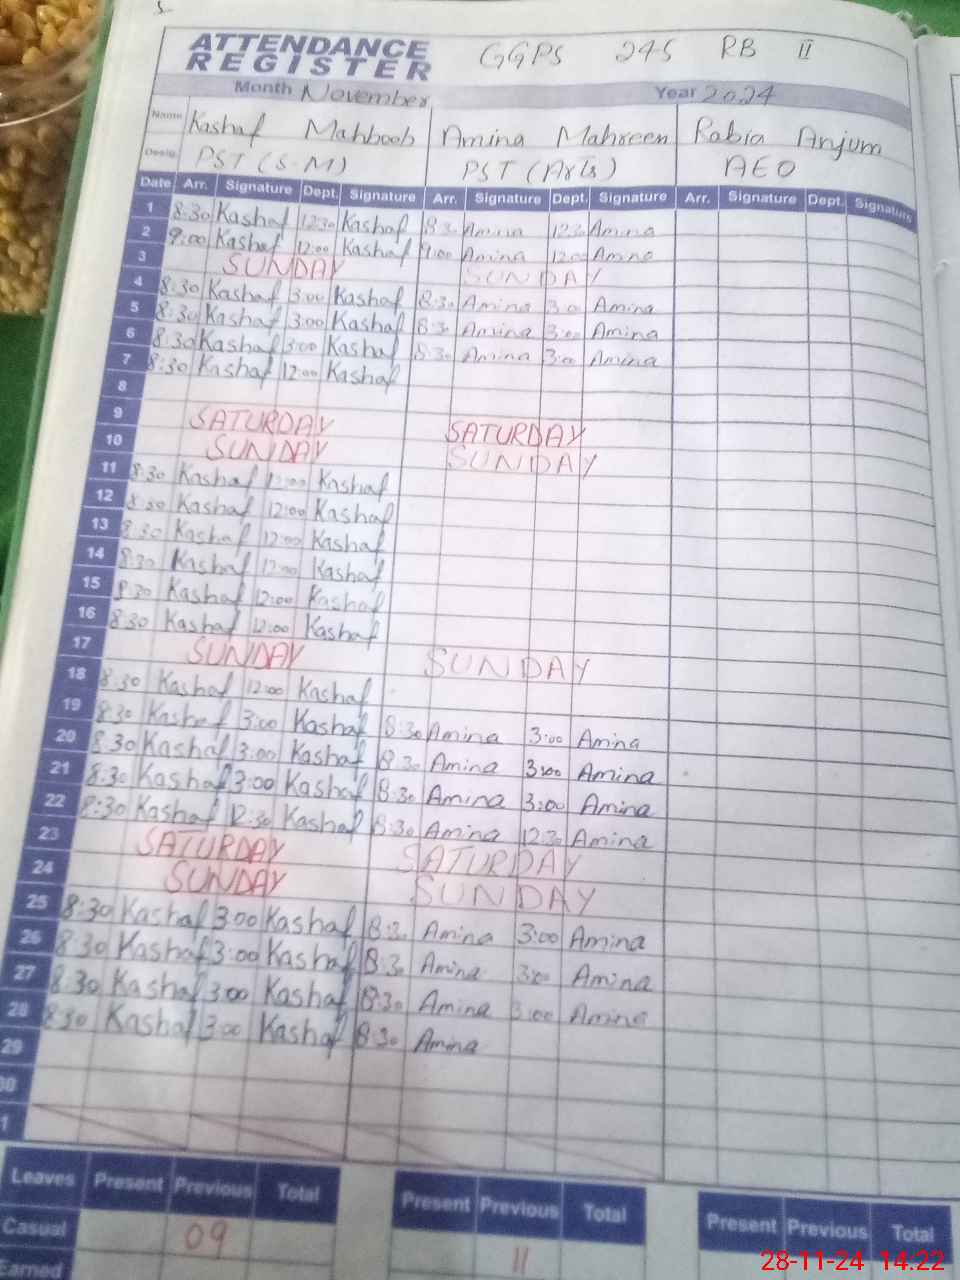 ATTENDANCE REGISTER GGPS 245 RB II
Month November Year 2024
Name Kashaf Mahboob Amina Mahreen Rabia Anjum
Desig. PST (S.M) PST (Arts) AEO
Date Arr. Signature Dept. Signature Arr. Signature Dept. Signature Arr. Signature Dept. Signature
1 8:30 Kashaf 12:30 Kashaf 8:30 Amina 12:30 Amina
2 9:00 Kashaf 12:00 Kashaf 9:00 Amina 12:00 Amina
3 SUNDAY SUNDAY
4 8:30 Kashaf 3:00 Kashaf 8:30 Amina 3:00 Amina
5 8:30 Kashaf 3:00 Kashaf 8:30 Amina 3:00 Amina
6 8:30 Kashaf 3:00 Kashaf 8:30 Amina 3:00 Amina
7 8:30 Kashaf 12:00 Kashaf
8
9 SATURDAY SATURDAY
10 SUNDAY SUNDAY
11 8:30 Kashaf 12:00 Kashaf
12 8:30 Kashaf 12:00 Kashaf
13 8:30 Kashaf 12:00 Kashaf
14 8:30 Kashaf 12:00 Kashaf
15 8:30 Kashaf 12:00 Kashaf
16 8:30 Kashaf 12:00 Kashaf
17 SUNDAY SUNDAY
18 8:30 Kashaf 12:00 Kashaf
19 8:30 Kashaf 3:00 Kashaf 8:30 Amina 3:00 Amina
20 8:30 Kashaf 3:00 Kashaf 8:30 Amina 3:00 Amina
21 8:30 Kashaf 3:00 Kashaf 8:30 Amina 3:00 Amina
22 8:30 Kashaf 12:30 Kashaf 8:30 Amina 12:30 Amina
23 SATURDAY SATURDAY
24 SUNDAY SUNDAY
25 8:30 Kashaf 3:00 Kashaf 8:30 Amina 3:00 Amina
26 8:30 Kashaf 3:00 Kashaf 8:30 Amina 3:00 Amina
27 8:30 Kashaf 3:00 Kashaf 8:30 Amina 3:00 Amina
28 8:30 Kashaf 3:00 Kashaf 8:30 Amina
29
30
1
Leaves Present Previous Total Present Previous Total Present Previous Total
Casual 09 11
Earned
28-11-24 14:22